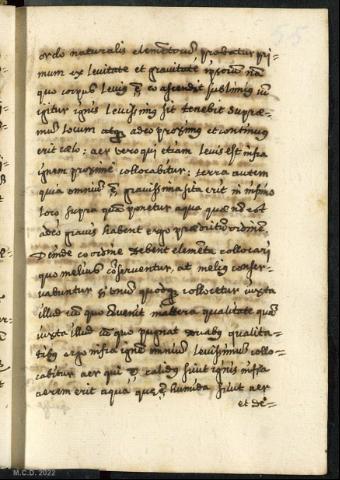 55
ordo naturalis elemetorū probatur pri=
mum ex levitate et gravitate ipsorū nã
quo corpus levis ẽ, eo ascendit sublimis cũ
igitur ignis levissimꝯ sit tenebit supræ=
mũ locum atqꝫ adeo proximꝯ et continuus
erit cælo: aer vero qui etiam levis est infra
ignem proxime collocabitur: terra autem
quia omniũ ẽ gravissima sita erit in infimo
loco supra quã ponetur aqua quæ nõ est
adeo gravis habent ergo prædictũ ordinẽ.
Deinde eo ordine debent elemẽta collocari
quo melius cõserventur, at meliꝯ conser=
vabuntur si unũ quodqꝫ collocetur iuxta
illud cũ quo cõvenit in altera qualitate quã
iuxta illud cũ quo pugnat duabꝯ qualita=
tibꝯ ergo infra ignẽ omniũ levissimũ collo=
cabitur aer qui ẽ calidꝯ sicut ignis infra
aerem erit aqua quæ ẽ humida sicut aer
et de=
M.C.D. 2022